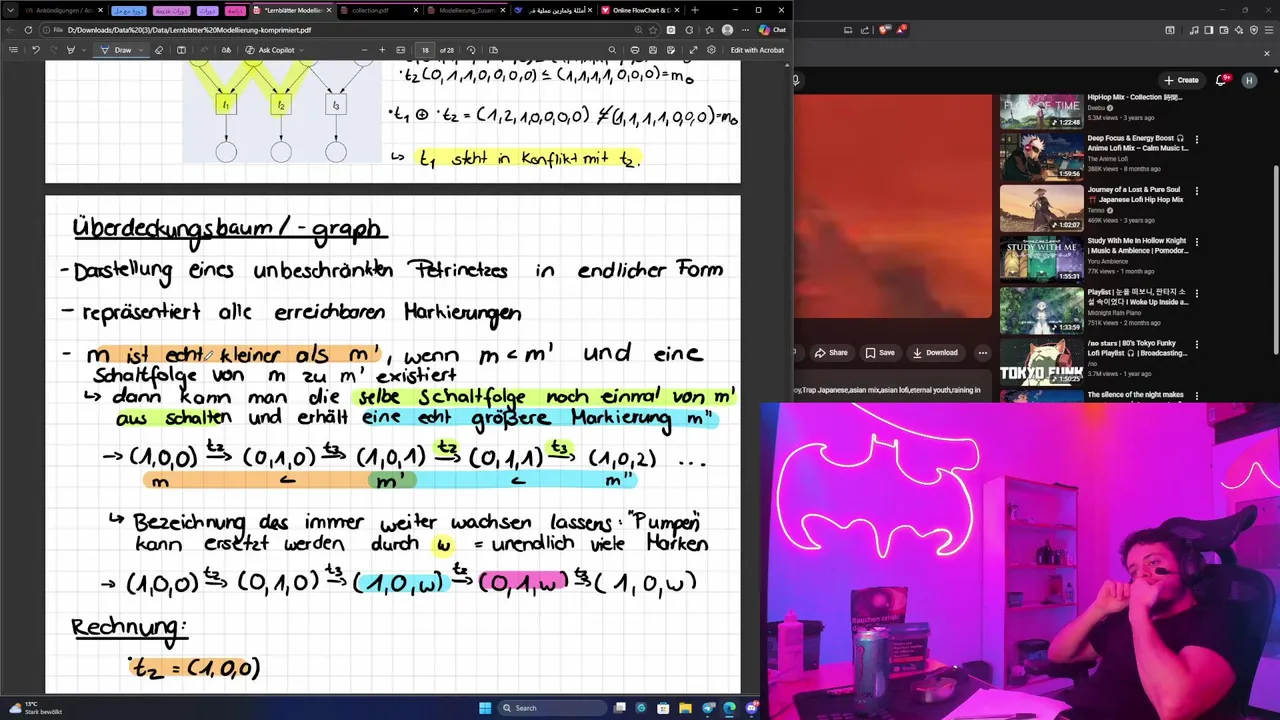 Ankündigungen / Ann
دورة مع حل
دورات قديمة
دورات
دراسة
*Lernblätter Modellier
collection.pdf
Modellierung_Zusam
أمثلة وتمارين عملية
Online FlowChart & D
D:/Downloads/Data%20(3)/Data/Lernblätter%20Modellierung-komprimiert.pdf
Chat
Draw
Ask Copilot
18
of 28
Edit with Acrobat
t1
t2
t3
·t2 (0,1,1,0,0,0,0) ≤ (1,1,1,1,0,0,0) = m0
·t1 ⊕ ·t2 = (1,2,1,0,0,0,0) ≰ (1,1,1,1,0,0,0) = m0
↳ t1 steht in Konflikt mit t2.
Überdeckungsbaum / -graph
- Darstellung eines unbeschränkten Petrinetzes in endlicher Form
- repräsentiert alle erreichbaren Markierungen
- m ist echt kleiner als m', wenn m < m' und eine
Schaltfolge von m zu m' existiert
↳ dann kann man die selbe Schaltfolge noch einmal von m'
aus schalten und erhält eine echt größere Markierung m"
→ (1,0,0) t2→ (0,1,0) t3→ (1,0,1) t2→ (0,1,1) t3→ (1,0,2) ...
m < m' < m"
↳ Bezeichnung des immer weiter wachsen lassens: "Pumpen"
kann ersetzt werden durch w = unendlich viele Marken
→ (1,0,0) t2→ (0,1,0) t3→ (1,0,w) t2→ (0,1,w) t3→ (1,0,w)
Rechnung:
·t2 = (1,0,0)
13°C
Stark bewölkt
Search
Create
9+
H
Share
Save
Download
oy,Trap Japanese,asian mix,asian lofi,eternal youth,raining in
FLOW OF TIME
1:22:48
HipHop Mix - Collection
Deebu
5.3M views • 3 years ago
1:59:56
Deep Focus & Energy Boost
Anime Lofi Mix – Calm Music t...
The Anime Lofi
388K views • 8 months ago
1:02:07
Journey of a Lost & Pure Soul
Japanese Lofi Hip Hop Mix
Tenno
469K views • 3 years ago
1:55:31
Study With Me In Hollow Knight
| Music & Ambience | Pomodor...
Yoru Ambience
77K views • 1 month ago
1:33:59
Playlist | 눈을 떠보니, 판타지 소
설 속이었다 I Woke Up Inside a...
Midnight Rain Piano
751K views • 2 months ago
TOKYO FUNK
1:50:25
/no stars | 80's Tokyo Funky
Lofi Playlist | Broadcasting...
/no
3.7M views • 1 year ago
The silence of the night makes
Rauchen erhöht